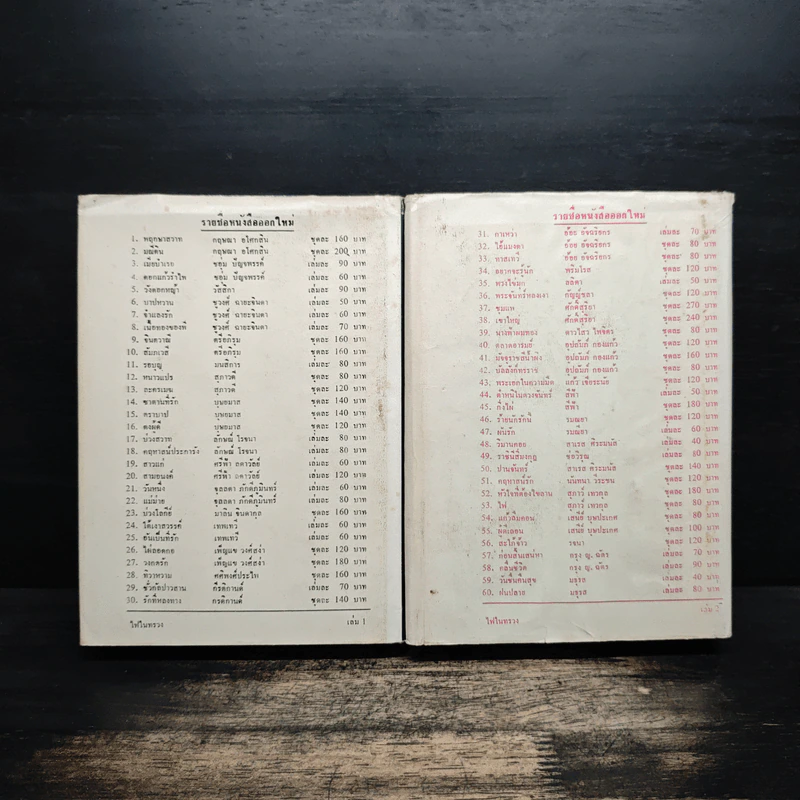 รายชื่อหนังสือออกใหม่
1. พฤกษาสวาท กฤษณา อโศกสิน ชุดละ 160 บาท
2. มณีดิน กฤษณา อโศกสิน ชุดละ 200 บาท
3. เมียบำเรอ ชอุ่ม ปัญจพรรค์ เล่มละ 90 บาท
4. ดอกแก้วรำไพ ชอุ่ม ปัญจพรรค์ เล่มละ 60 บาท
5. วังดอกหญ้า วัสสิกา เล่มละ 90 บาท
6. บาปหวาน ชูวงศ์ ฉายะจินดา เล่มละ 50 บาท
7. จำเลยรัก ชูวงศ์ ฉายะจินดา เล่มละ 60 บาท
8. เนื้อทองของพี่ ชูวงศ์ ฉายะจินดา เล่มละ 70 บาท
9. จินตวาณี ตรีอภิรุม ชุดละ 160 บาท
10. สัมภเวสี ตรีอภิรุม ชุดละ 160 บาท
11. รอบูญ มนสิการ เล่มละ 80 บาท
12. หนาวแปร สุภาวดี ชุดละ 80 บาท
13. ละครเมฆ สุภาวดี ชุดละ 120 บาท
14. ซาตานที่รัก บุษยมาส ชุดละ 140 บาท
15. คราบาป บุษยมาส ชุดละ 140 บาท
16. ดงผู้ดี บุษยมาส ชุดละ 120 บาท
17. บ่วงสวาท ลักษณ์ โรจนา เล่มละ 80 บาท
18. คฤหาสน์ปะการัง ลักษณ์ โรจนา เล่มละ 80 บาท
19. สาวแก่ ศรีฟ้า ลดาวัลย์ เล่มละ 60 บาท
20. สามยนตค์ ศรีฟ้า ลดาวัลย์ ชุดละ 120 บาท
21. วันหนึ่ง จุลลดา ภักดีภูมินทร์ เล่มละ 60 บาท
22. แม่ม่าย จุลลดา ภักดีภูมินทร์ เล่มละ 80 บาท
23. บ่วงโลกีย์ มาลิน จินดากุล ชุดละ 160 บาท
24. ใต้เงาสวรรค์ เทพเทวี เล่มละ 60 บาท
25. อันเป็นที่รัก เทพเทวี เล่มละ 60 บาท
26. ไผ่ลอดกอ เพ็ญแข วงศ์สง่า ชุดละ 120 บาท
27. วงศ์รัก เพ็ญแข วงศ์สง่า ชุดละ 180 บาท
28. ทิวาหวาม ศศิพงศ์ประไพ ชุดละ 160 บาท
29. ชั่วกัลปาวสาน กิรติกานต์ เล่มละ 70 บาท
30. รักที่หลงทาง กิรติกานต์ ชุดละ 140 บาท
ไฟในทรวง เล่ม 1
รายชื่อหนังสือออกใหม่
31. กาเหว่า อ้อย อัจฉริยกร เล่มละ 70 บาท
32. ไอ้แมงดา อ้อย อัจฉริยกร ชุดละ 80 บาท
33. ทาสเทวี อ้อย อัจฉริยกร ชุดละ 120 บาท
34. อยากจะรู้นัก พริมโรส ชุดละ 120 บาท
35. หงาไข่มุก ลลิตา เล่มละ 50 บาท
36. พระจันทร์หลงเงา กัญญ์ชลา ชุดละ 120 บาท
37. ขุมแพ ศักดิ์สุริยา ชุดละ 270 บาท
38. เขาใหญ่ ศักดิ์สุริยา ชุดละ 240 บาท
39. นางฟ้าผมทอง ดาวไสว ไพจิตร ชุดละ 80 บาท
40. อุภาคอารมย์ อุปถัมภ์ กองแก้ว ชุดละ 120 บาท
41. มัจจุราชสีน้ำผึ้ง อุปถัมภ์ กองแก้ว ชุดละ 160 บาท
42. บัลลังก์ทรราช อุปถัมภ์ กองแก้ว ชุดละ 80 บาท
43. พระเอกในความมืด แก้ว เจียระนัย ชุดละ 120 บาท
44. ตำหนักในดวงจันทร์ สีฟ้า เล่มละ 50 บาท
45. กิ่งไผ่ สีฟ้า ชุดละ 180 บาท
46. ร้ายนักรักนี้ รมณยา ชุดละ 120 บาท
47. ผันรัก รมณียา เล่มละ 60 บาท
48. วิมานคอย สาเรส ศิระมนัส เล่มละ 40 บาท
49. ราชินีสีมงกุฎ ช่อวิรุณ เล่มละ 80 บาท
50. ปานจันทร์ สาเรส ศิระมนัส ชุดละ 140 บาท
51. คฤหาสน์รัก นันทนา วีระชน ชุดละ 120 บาท
52. หัวใจที่ต้องใช้ลาน สุภาว์ เทวกุล ชุดละ 180 บาท
53. ไฟ สุภาว์ เทวกุล ชุดละ 80 บาท
54. แก้วลืมคอน เสนีย์ บุษปะเกศ ชุดละ 80 บาท
55. ผู้ดีเลอน เสนีย์ บุษปะเกศ ชุดละ 100 บาท
56. สะใภ้จ้าว รจนา ชุดละ 120 บาท
57. ก่อนสิ้นเสน่หา อรุง ญ. ฉัตร เล่มละ 70 บาท
58. คลื่นชีวิต กรุง ญ. ฉัตร เล่มละ 90 บาท
59. วันชื่นคืนสุข มธุรส เล่มละ 40 บาท
60. ฝนปลาย มธุรส เล่มละ 80 บาท
ไฟในทรวง เล่ม 2